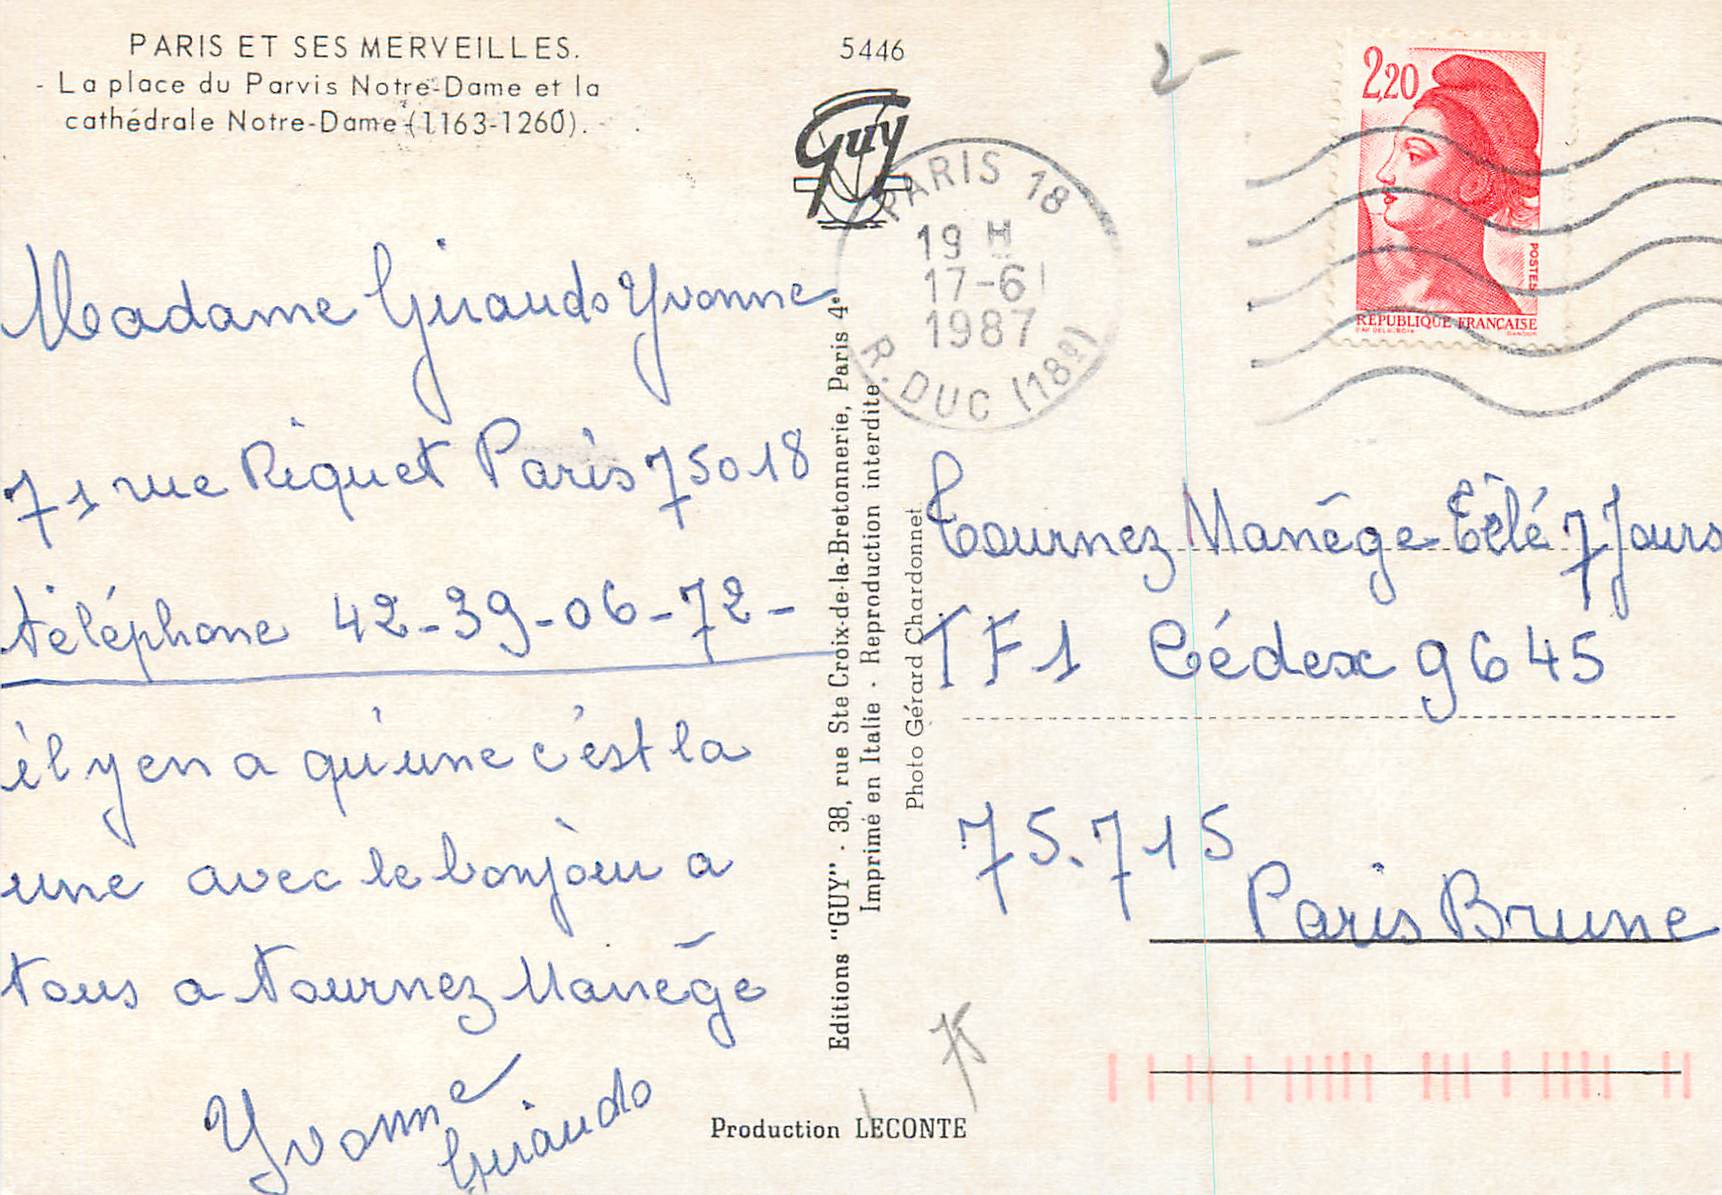 PARIS ET SES MERVEILLES.
- La place du Parvis Notre-Dame et la
cathédrale Notre-Dame (1163-1260).
5446
Guy
2-
2,20
POSTES
REPUBLIQUE FRANÇAISE
PARIS 18
19 H
17-6
1987
R. DUC (18e)
Madame Giraudo Yvonne
71 rue Riquet Paris 75018
téléphone 42-39-06-72-
il y en a qu'une c'est la
une avec le bonjour a
tous a tournez Manège
Yvonne
Giraudo
Editions "GUY" · 38, rue Ste Croix-de-la-Bretonnerie, Paris 4e
Imprimé en Italie · Reproduction interdite
Photo Gérard Chardonnet
Tournez Manège Télé 7 Jours
TF1 Cédex 9645
75.715
Paris Brune
75
Production LECONTE